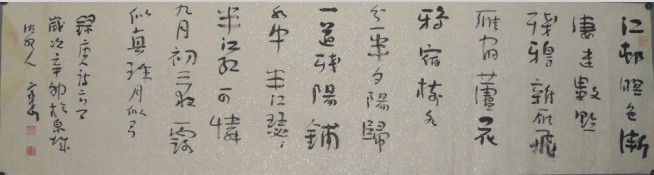 江邨暝色漸
凄迷數點
殘鴉雜雁飛
雁宿蘆花
鴉宿樹各
分一半夕陽歸
一道殘陽鋪
水中半江瑟〻
半江紅可憐
九月初三夜露
似真珠月似弓
錄唐人詩二首
歲次辛卯於泉城